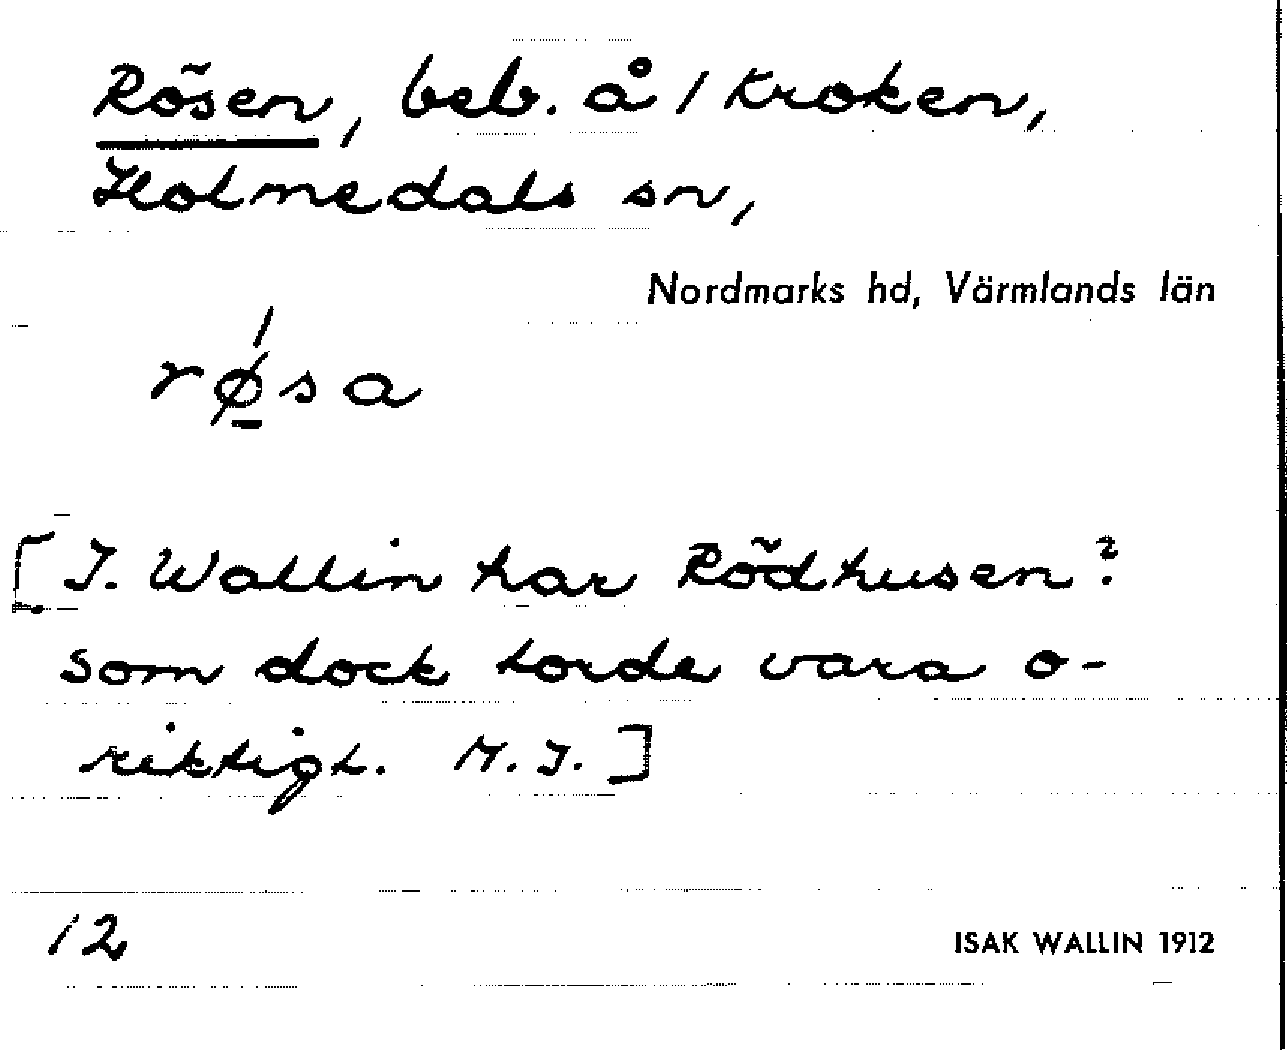 Rösen, beb. å 1 Kroken,
Holmedals sn,
Nordmarks hd, Värmlands län
rǿ̱sa
[I. Wallin har Rödhusen?
som dock torde vara o-
riktigt. M.J.]
12
ISAK WALLIN 1912